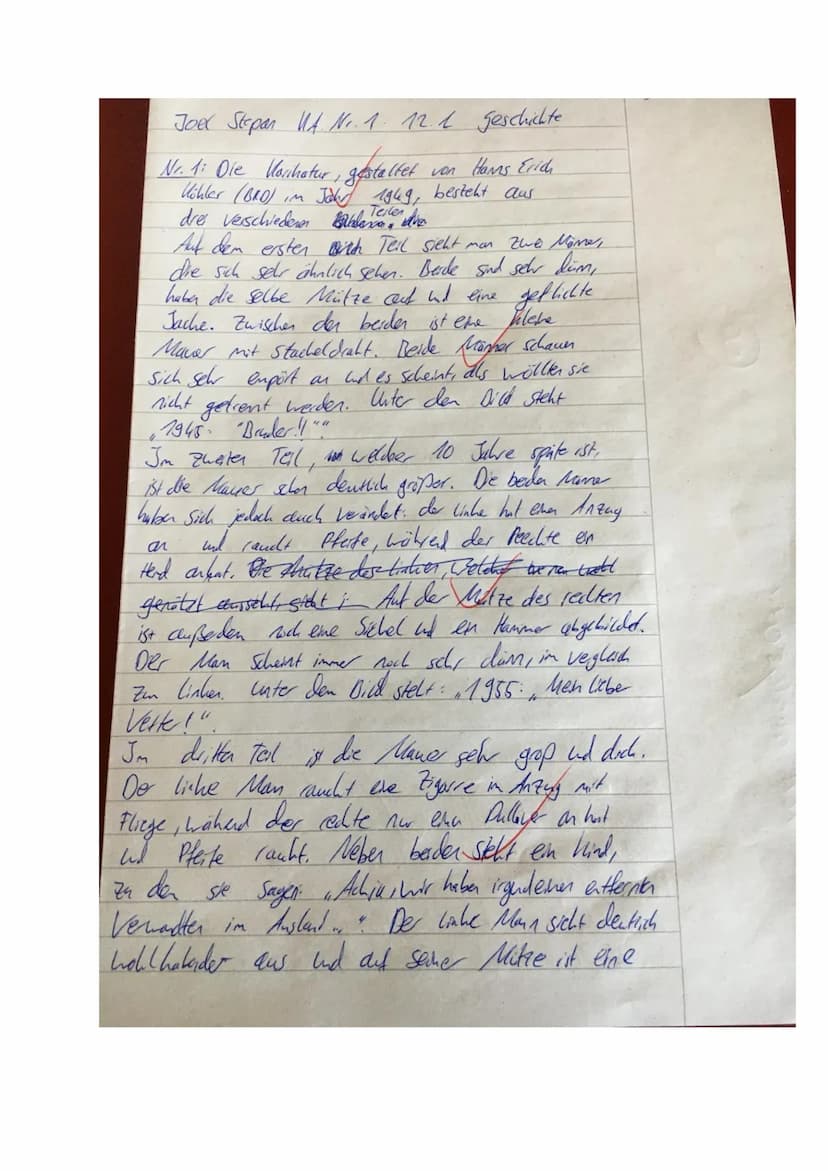 Joel Stepan HA Nr. 1 12.1 Geschichte
Nr. 1: Die Karikatur, gestaltet von Hanns Erich
Köhler (BRD) im Jahr 1949, besteht aus
drei verschiedenen Teilen.
Auf dem ersten Teil sieht man zwei Männer,
die sich sehr ähnlich sehen. Beide sind sehr dünn,
haben die selbe Mütze auf und eine geflickte
Jacke. Zwischen den beiden ist eine kleine
Mauer mit Stacheldraht. Beide Männer schauen
sich sehr empört an und es scheint, als wollten sie
nicht getrennt werden. Unter dem Bild steht
„1945: "Bruder!!““
Im zweiten Teil, welcher 10 Jahre später ist,
ist die Mauer schon deutlich größer. Die beiden Männer
haben sich jedoch auch verändert: der linke hat einen Anzug
an und raucht Pfeife, während der Rechte ein
Hemd anhat. Die Mütze des linken, welche
genäht aussieht, sieht Auf der Mütze des rechten
ist außerdem noch eine Sichel und ein Hammer abgebildet.
Der Mann scheint immer noch sehr dünn, im Vergleich
zum linken. Unter dem Bild steht: „1955: „Mein lieber
Vetter!“.
Im dritten Teil ist die Mauer sehr groß und dick.
Der linke Mann raucht eine Zigarre im Anzug mit
Fliege, während der rechte nur einen Pullover an hat
und Pfeife raucht. Neben beiden steht ein Kind,
zu den sie sagen: „Achja, wir haben irgendeinen entfernten
Verwandten im Ausland..“. Der linke Mann sieht deutlich
wohlhabender aus und auf seiner Mütze ist eine